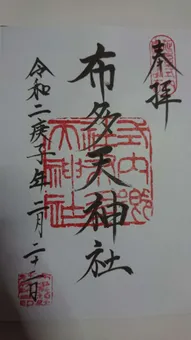 奉拝
布多天神社
令和二庚子年二月二十二日